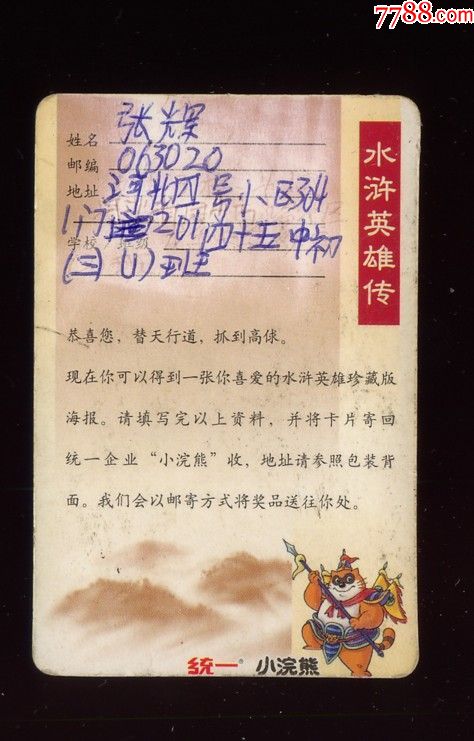 7788.com
水浒英雄传
姓名 张辉
邮编 063020
地址 河北四号小区304
1门201,四十五中初
学校 班级
(三)(1)班
恭喜您,替天行道,抓到高俅。
现在你可以得到一张你喜爱的水浒英雄珍藏版
海报。请填写完以上资料,并将卡片寄回
统一企业“小浣熊”收,地址请参照包装背
面。我们会以邮寄方式将奖品送往你处。
统一® 小浣熊